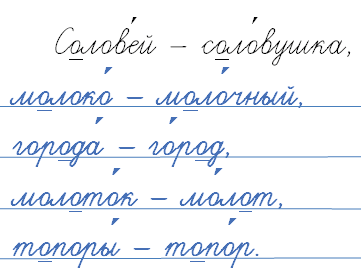 Соловей – соловушка,
молоко – молочный,
города – город,
молоток – молот,
топоры – топор.